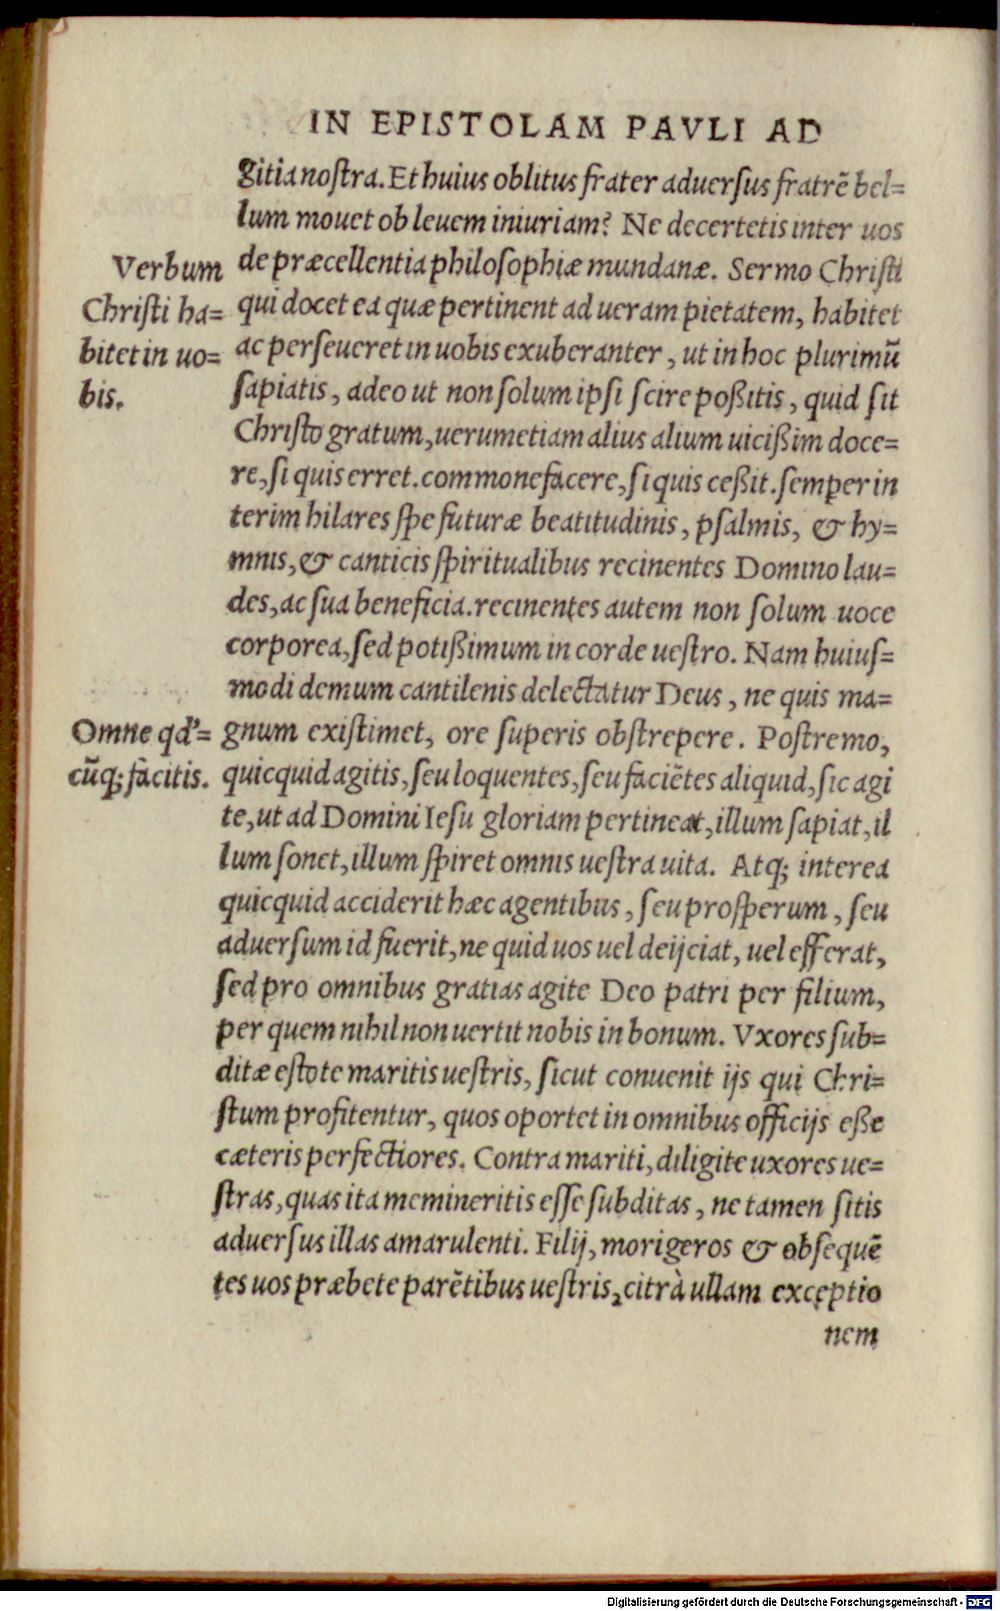 IN EPISTOLAM PAVLI AD
gitia noſtra. Et huius oblitus frater aduerſus fratrē bel=
lum mouet ob leuem iniuriam? Ne decertetis inter uos
de præcellentia philoſophiæ mundanæ. Sermo Chriſti
qui docet ea quæ pertinent ad ueram pietatem, habitet
ac perſeueret in uobis exuberanter, ut in hoc plurimū
ſapiatis, adeo ut non ſolum ipſi ſcire poßitis, quid ſit
Chriſto gratum, uerumetiam alius alium uicißim doce=
re, ſi quis erret. commonefacere, ſi quis ceßit. ſemper in
terim hilares ſpe futuræ beatitudinis, pſalmis, & hy=
mnis, & canticis ſpiritualibus recinentes Domino lau=
des, ac ſua beneficia. recinentes autem non ſolum uoce
corporea, ſed potißimum in corde ueſtro. Nam huiuſ=
modi demum cantilenis delectatur Deus, ne quis ma=
gnum exiſtimet, ore ſuperis obſtrepere. Poſtremo,
quicquid agitis, ſeu loquentes, ſeu faciētes aliquid, ſic agi
te, ut ad Domini Ieſu gloriam pertineat, illum ſapiat, il
lum ſonet, illum ſpiret omnis ueſtra uita. Atq; interea
quicquid acciderit hæc agentibus, ſeu proſperum, ſeu
aduerſum id fuerit, ne quid uos uel deijciat, uel efferat,
ſed pro omnibus gratias agite Deo patri per filium,
per quem nihil non uertit nobis in bonum. Vxores ſub=
ditæ eſtote maritis ueſtris, ſicut conuenit ijs qui Chri=
ſtum profitentur, quos oportet in omnibus officijs eße
cæteris perfectiores. Contra mariti, diligite uxores ue=
ſtras, quas ita memineritis eſſe ſubditas, ne tamen ſitis
aduerſus illas amarulenti. Filij, morigeros & obſequē
tes uos præbete parētibus ueſtris, citrà ullam exceptio
nem
Verbum
Chriſti ha=
bitet in uo=
bis.
Omne qd'=
cūq; facitis.
Digitalisierung gefördert durch die Deutsche Forschungsgemeinschaft - DFG